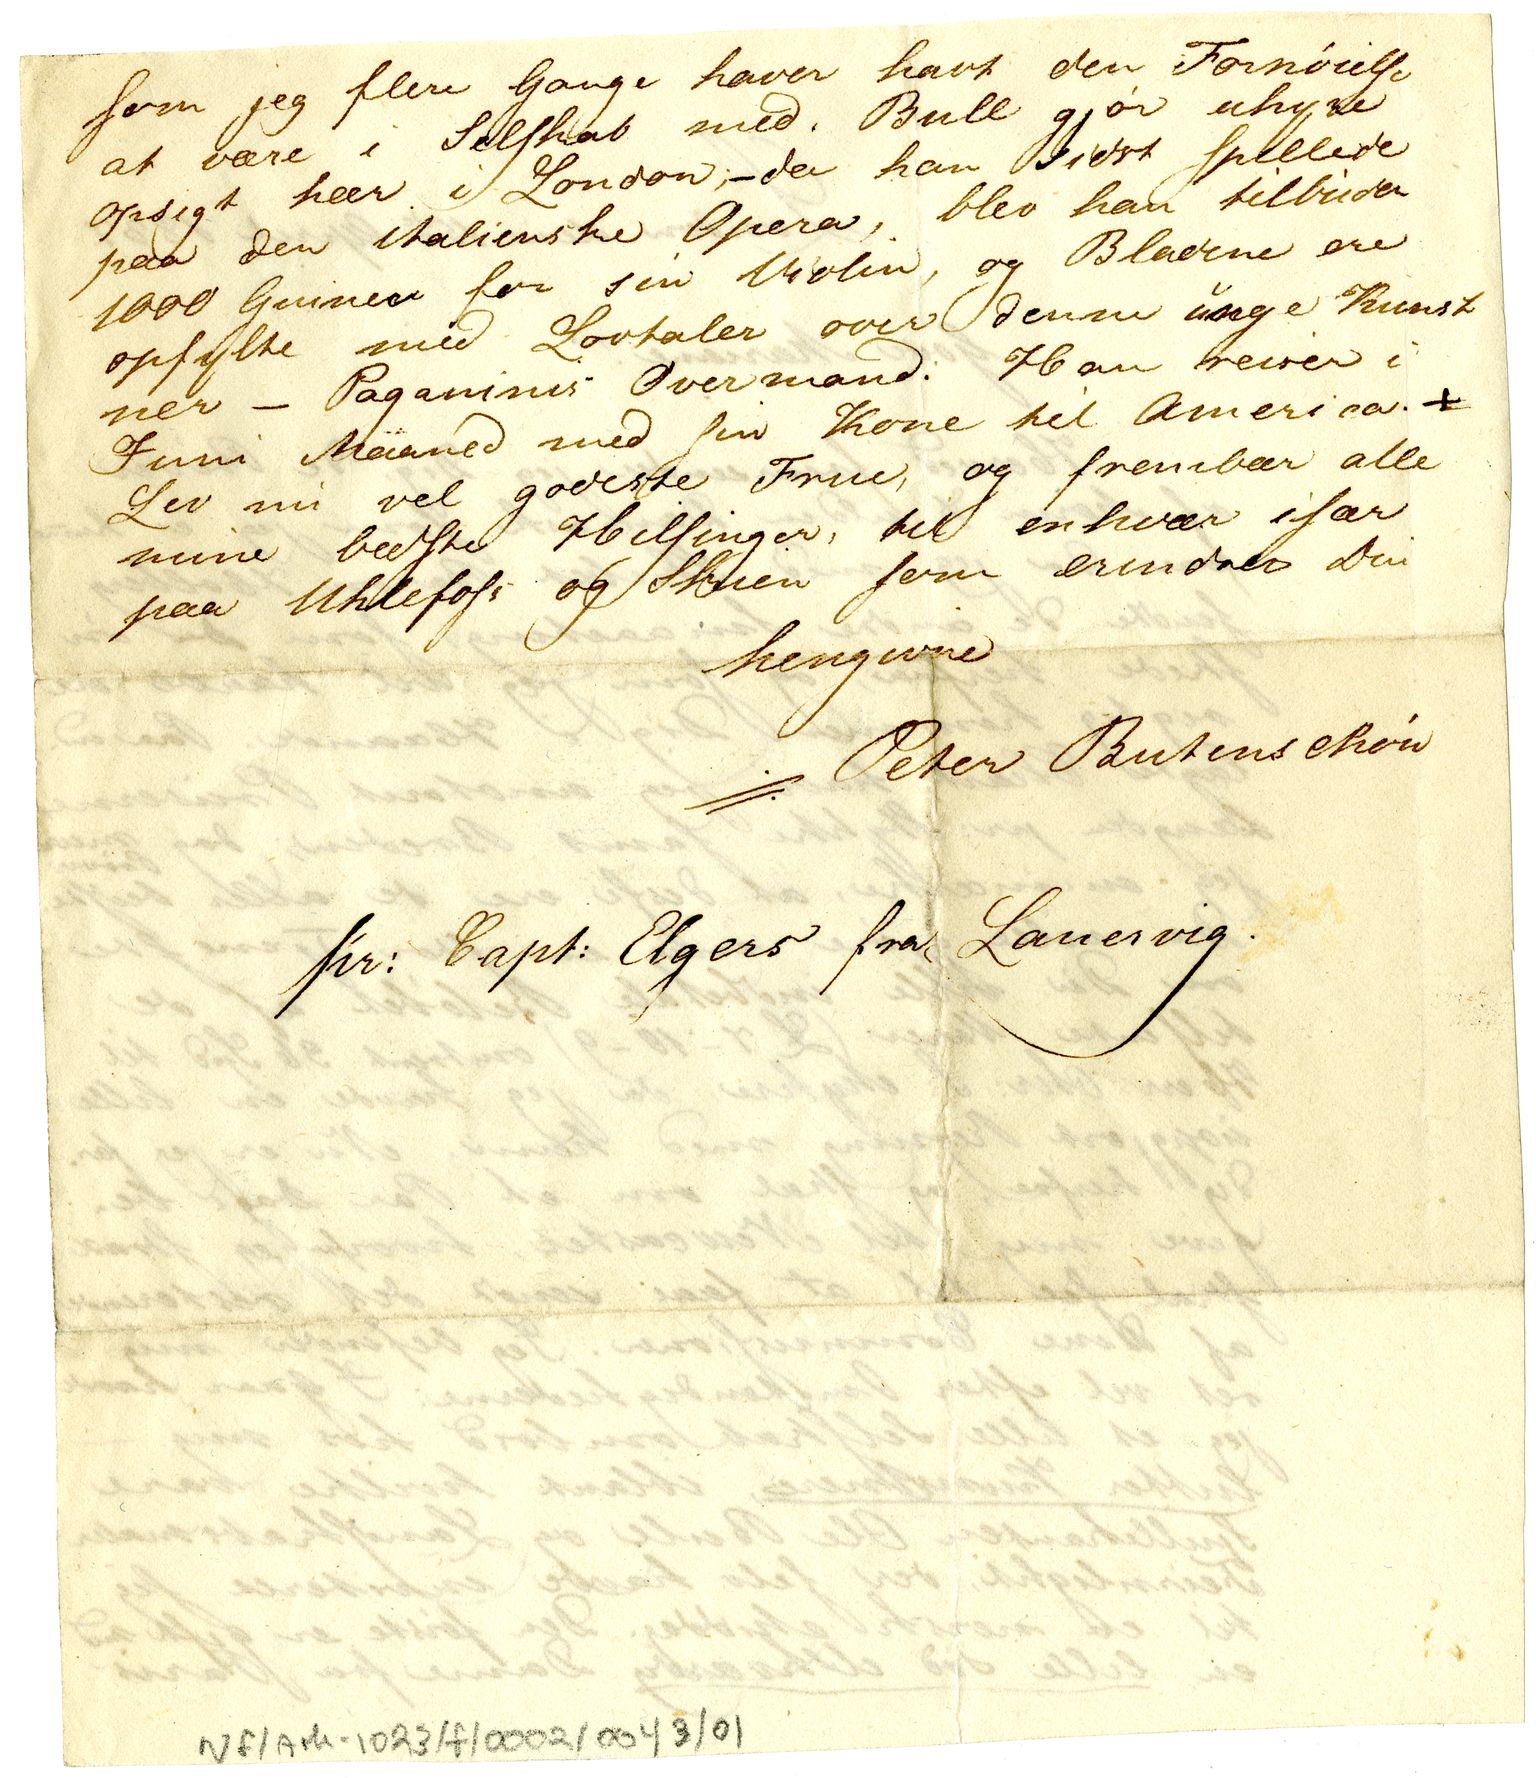 som jeg flere Gange haver havt den Fornöielse
at være i Selskab med. Bull gjör uhyre
opsigt hær i London, – da han sidst spillede
paa den italienske Opera, blev han tilbüden
1000 Guineer for sin Violin, og Bladene ere
opfylte med Lovtaler over denne ünge Kunst
ner – Paganinis Overmand. Han reiser i
Juni Maaned med sin Kone til America. +
Lev nü vel godeste Frue, og frembær alle
mine bedste Hilsinger, til enhvær især
paa Uhlefoss og Skien som erindres Din
hengivne
Peter Butenschön
pr: Capt: Elgers fra Laurvig.
NF/Ark-1023/f/0002/0043/01